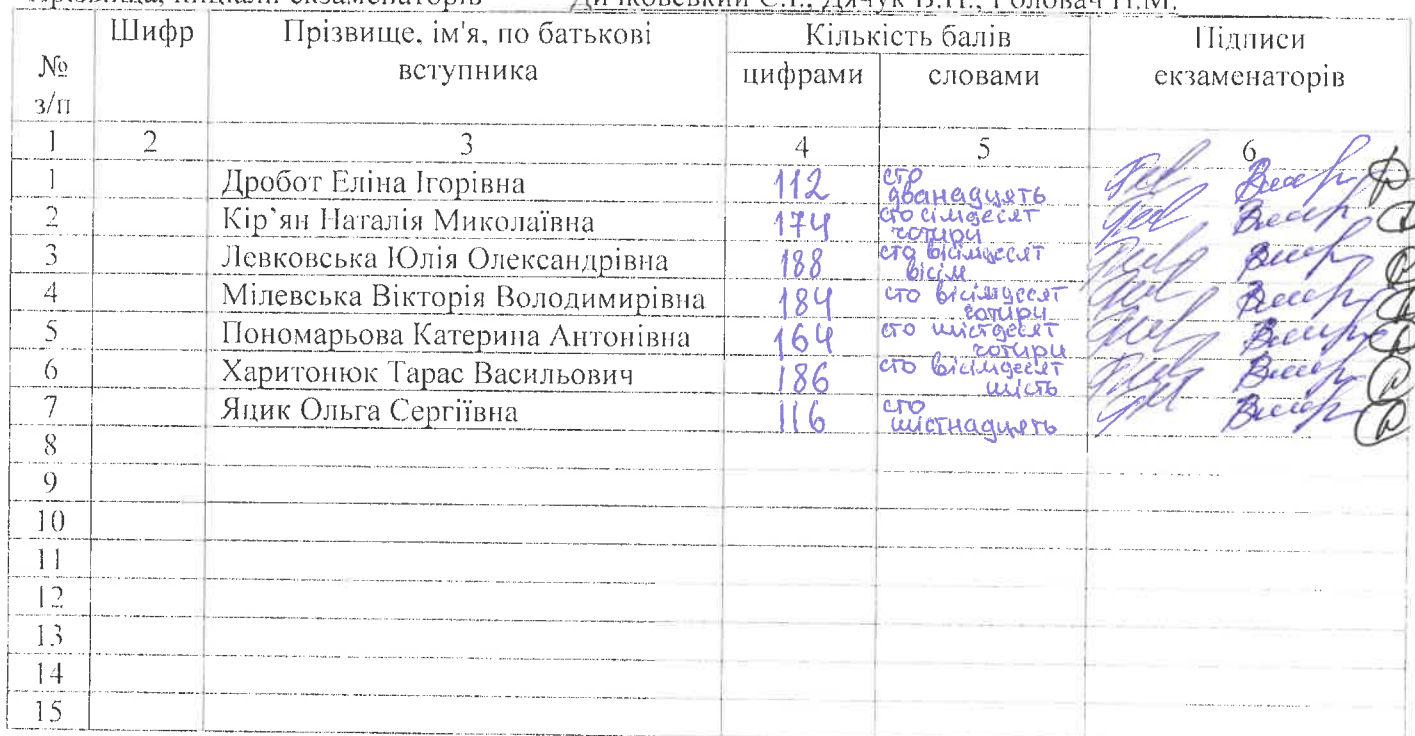 екзаменаторів Дичковський С.І., Дячук В.П., Головач Н.М.
№ з/п Шифр Прізвище, ім'я, по батькові вступника Кількість балів Підписи екзаменаторів
цифрами словами
1 2 3 4 5 6
1 Дробот Еліна Ігорівна 112 сто дванадцять
2 Кір’ян Наталія Миколаївна 174 сто сімдесят чотири
3 Левковська Юлія Олександрівна 188 сто вісімдесят вісім
4 Мілевська Вікторія Володимирівна 184 сто вісімдесят чотири
5 Пономарьова Катерина Антонівна 164 сто шістдесят чотири
6 Харитонюк Тарас Васильович 186 сто вісімдесят шість
7 Яцик Ольга Сергіївна 116 сто шістнадцять
8
9
10
11
12
13
14
15